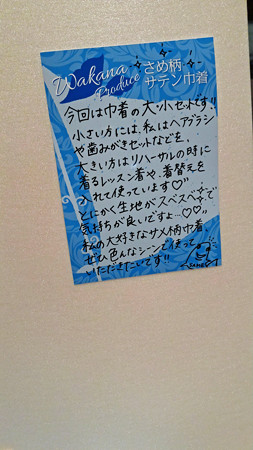 Wakana
Produce
さめ柄
サテン巾着
今回は巾着の大・小セットです!!
小さい方には、私はヘアブラシ
や歯みがきセットなどを。
大きい方はリハーサルの時に
着るレッスン着や、着替えを
入れて使っています♡"
とにかく生地がスベスベで
気持ちが良いですよ…♡♡"
私の大好きなサメ柄巾着、
ぜひ色んなシーンで使って
いただきたいです!!